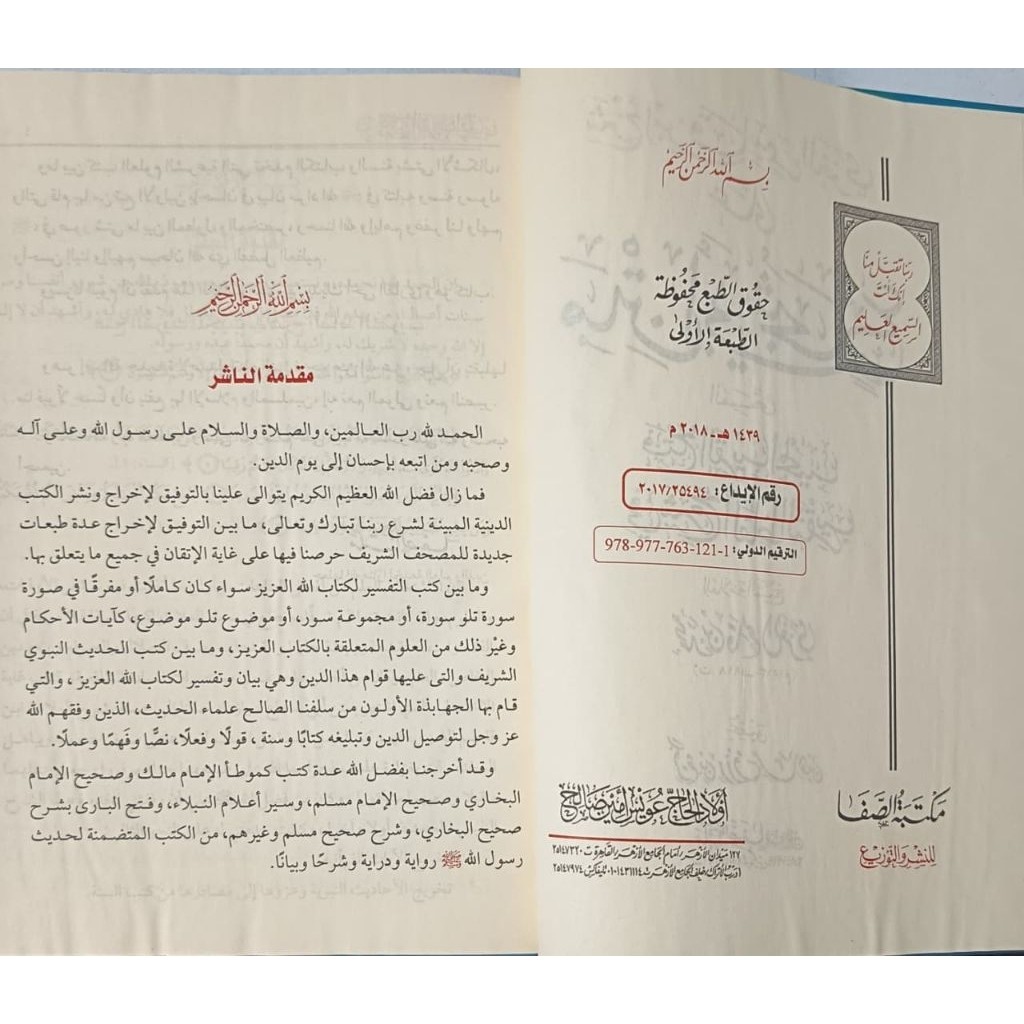 بسم الله الرحمن الرحيم
ربنا تقبل منا
إنك أنت
السميع العليم
حقوق الطبع محفوظة
الطبعة الأولى
١٤٣٩ هـ ـ ٢٠١٨ م
رقم الإيداع: ٢٠١٧/٢٥٤٩٤
الترقيم الدولي: 1-121-763-977-978
مكتبة الصفا
للنشر والتوزيع
أولاد الحاج عويس أمين صالح
١٢٧ ميدان الأزهر، أمام الجامع الأزهر، القاهرة ت ٢٥١٤٧٣٢٠
١ درب الأتراك خلف الجامع الأزهر ت ٠١٠١٤٣١١١٤٨ تليفاكس ٢٥١٤٧٩٧٤
بسم الله الرحمن الرحيم
مقدمة الناشر
الحمد لله رب العالمين، والصلاة والسلام على رسول الله وعلى آله
وصحبه ومن اتبعه بإحسان إلى يوم الدين.
فما زال فضل الله العظيم الكريم يتوالى علينا بالتوفيق لإخراج ونشر الكتب
الدينية المبينة لشرع ربنا تبارك وتعالى، ما بين التوفيق لإخراج عدة طبعات
جديدة للمصحف الشريف حرصنا فيها على غاية الإتقان في جميع ما يتعلق بها.
وما بين كتب التفسير لكتاب الله العزيز سواء كان كاملًا أو مفرقًا في صورة
سورة تلو سورة، أو مجموعة سور، أو موضوع تلو موضوع، كآيات الأحكام
وغيْر ذلك من العلوم المتعلقة بالكتاب العزيز، وما بين كتب الحديث النبوي
الشريف والتى عليها قوام هذا الدين وهي بيان وتفسير لكتاب الله العزيز ، والتي
قام بها الجهابذة الأولون من سلفنا الصالح علماء الحديث، الذين وفقهم الله
عز وجل لتوصيل الدين وتبليغه كتابًا وسنة ، قولًا وفعلًا، نصًّا وفَهمًا وعملًا.
وقد أخرجنا بفضل الله عدة كتب كموطأ الإمام مالك وصحيح الإمام
البخاري وصحيح الإمام مسلم، وسير أعلام النبلاء، وفتح البارى بشرح
صحيح البخاري، وشرح صحيح مسلم وغيرهم، من الكتب المتضمنة لحديث
رسول الله ﷺ رواية ودراية وشرحًا وبيانًا.